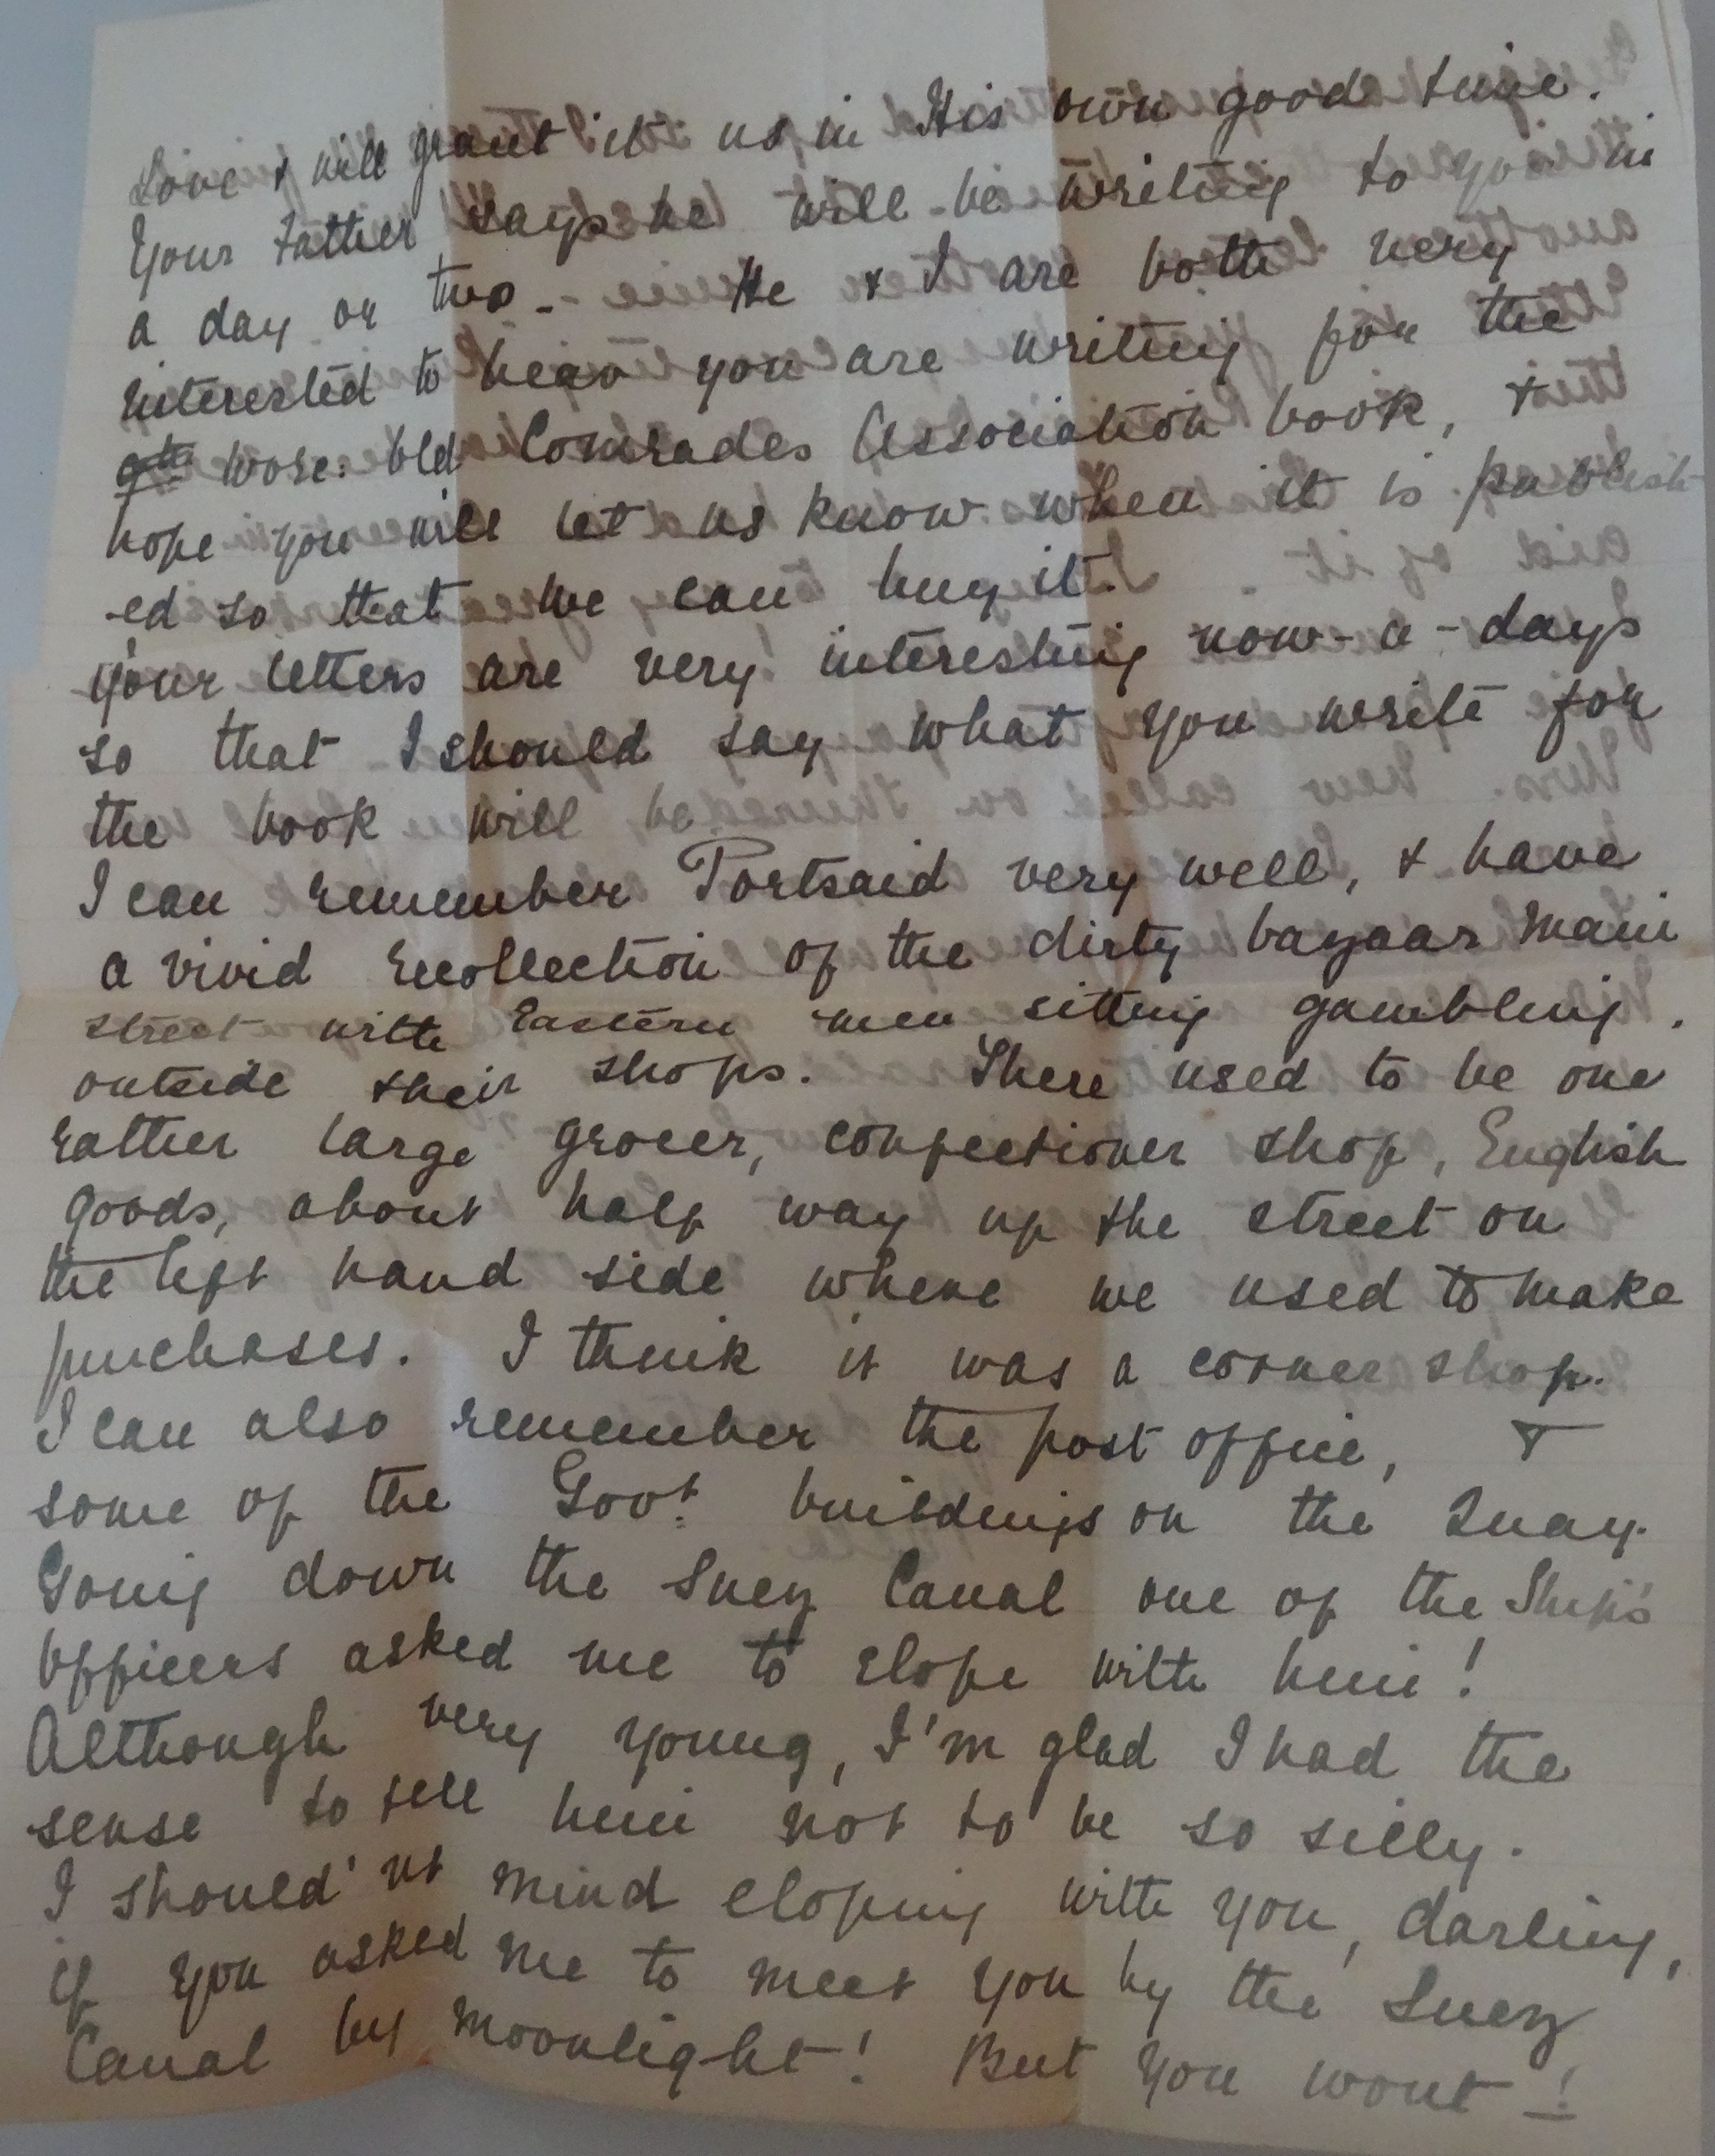 Love & will grant it us in His own good time.
Your Father says he will be writing to you in
a day or two - He & I are both very
interested to hear you are writing for the
9th Worc: Old Comrades Association book, &
hope you will let us know when it is publish
-ed so that we can buy it.
Your letters are very interesting now-a-days
so that I should say what you write for
the book will be
I can remember Portsaid very well, & have
a vivid recollection of the dirty bazaar main
street with Eastern men sitting gambling
outside their shops. There used to be one
rather large grocer, confectioner shop, English
goods, about half way up the street on
the left hand side where we used to make
purchases. I think it was a corner shop.
I can also remember the post office, &
some of the Govt. buildings on the Quay.
Going down the Suez Canal one of the Ship's
Officers asked me to elope with him!
Although very young, I'm glad I had the
sense to tell him not to be so silly.
I should'nt mind eloping with you, darling,
if you asked me to meet you by the Suez
Canal by moonlight! But you wont!